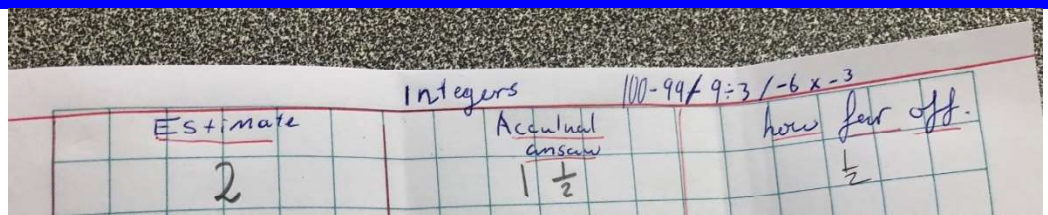 Integers 100-99/ 9÷3 / -6 x -3
Estimate Acculnal how far off.
answ
2 1 1/2 1/2